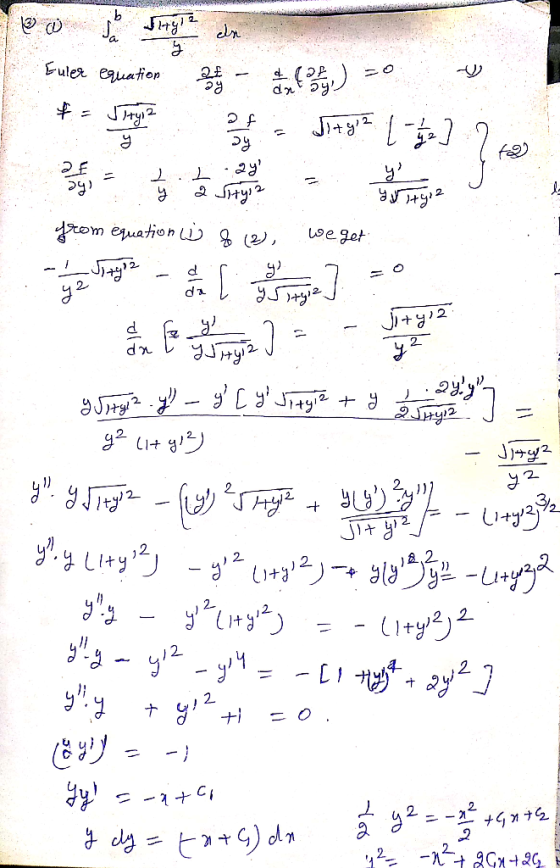 ② ① ∫ₐᵇ √(1+y'²)/y dx
Euler equation ∂f/∂y - d/dx (∂f/∂y') = 0 —(1)
f = √(1+y'²)/y ∂f/∂y = √(1+y'²) [-1/y²]
∂f/∂y' = 1/y · 1/2 · 2y'/√(1+y'²) = y'/(y√(1+y'²)) } —(2)
from equation (1) & (2), we get
-1/y² √(1+y'²) - d/dx [y'/(y√(1+y'²))] = 0
d/dx [y'/(y√(1+y'²))] = - √(1+y'²)/y²
(y√(1+y'²) · y'' - y' [y' √(1+y'²) + y 1·2y'y''/(2√(1+y'²))])/(y² (1+y'²)) = - √(1+y'²)/y²
y''· y√(1+y'²) - [(y')² √(1+y'²) + y(y')²·y''/√(1+y'²)] = - (1+y'²)^3/2
y''·y (1+y'²) - y'² (1+y'²) - y(y')² y'' = -(1+y'²)²
y''·y - y'²(1+y'²) = - (1+y'²)²
y''·y - y'² - y'⁴ = - [1 + (y')⁴ + 2y'²]
y''·y + y'² + 1 = 0.
(yy')' = -1
yy' = -x + C₁
y dy = (-x + C₁) dx
1/2 y² = -x²/2 + C₁x + C₂
y² = -x² + 2C₁x + 2C₂